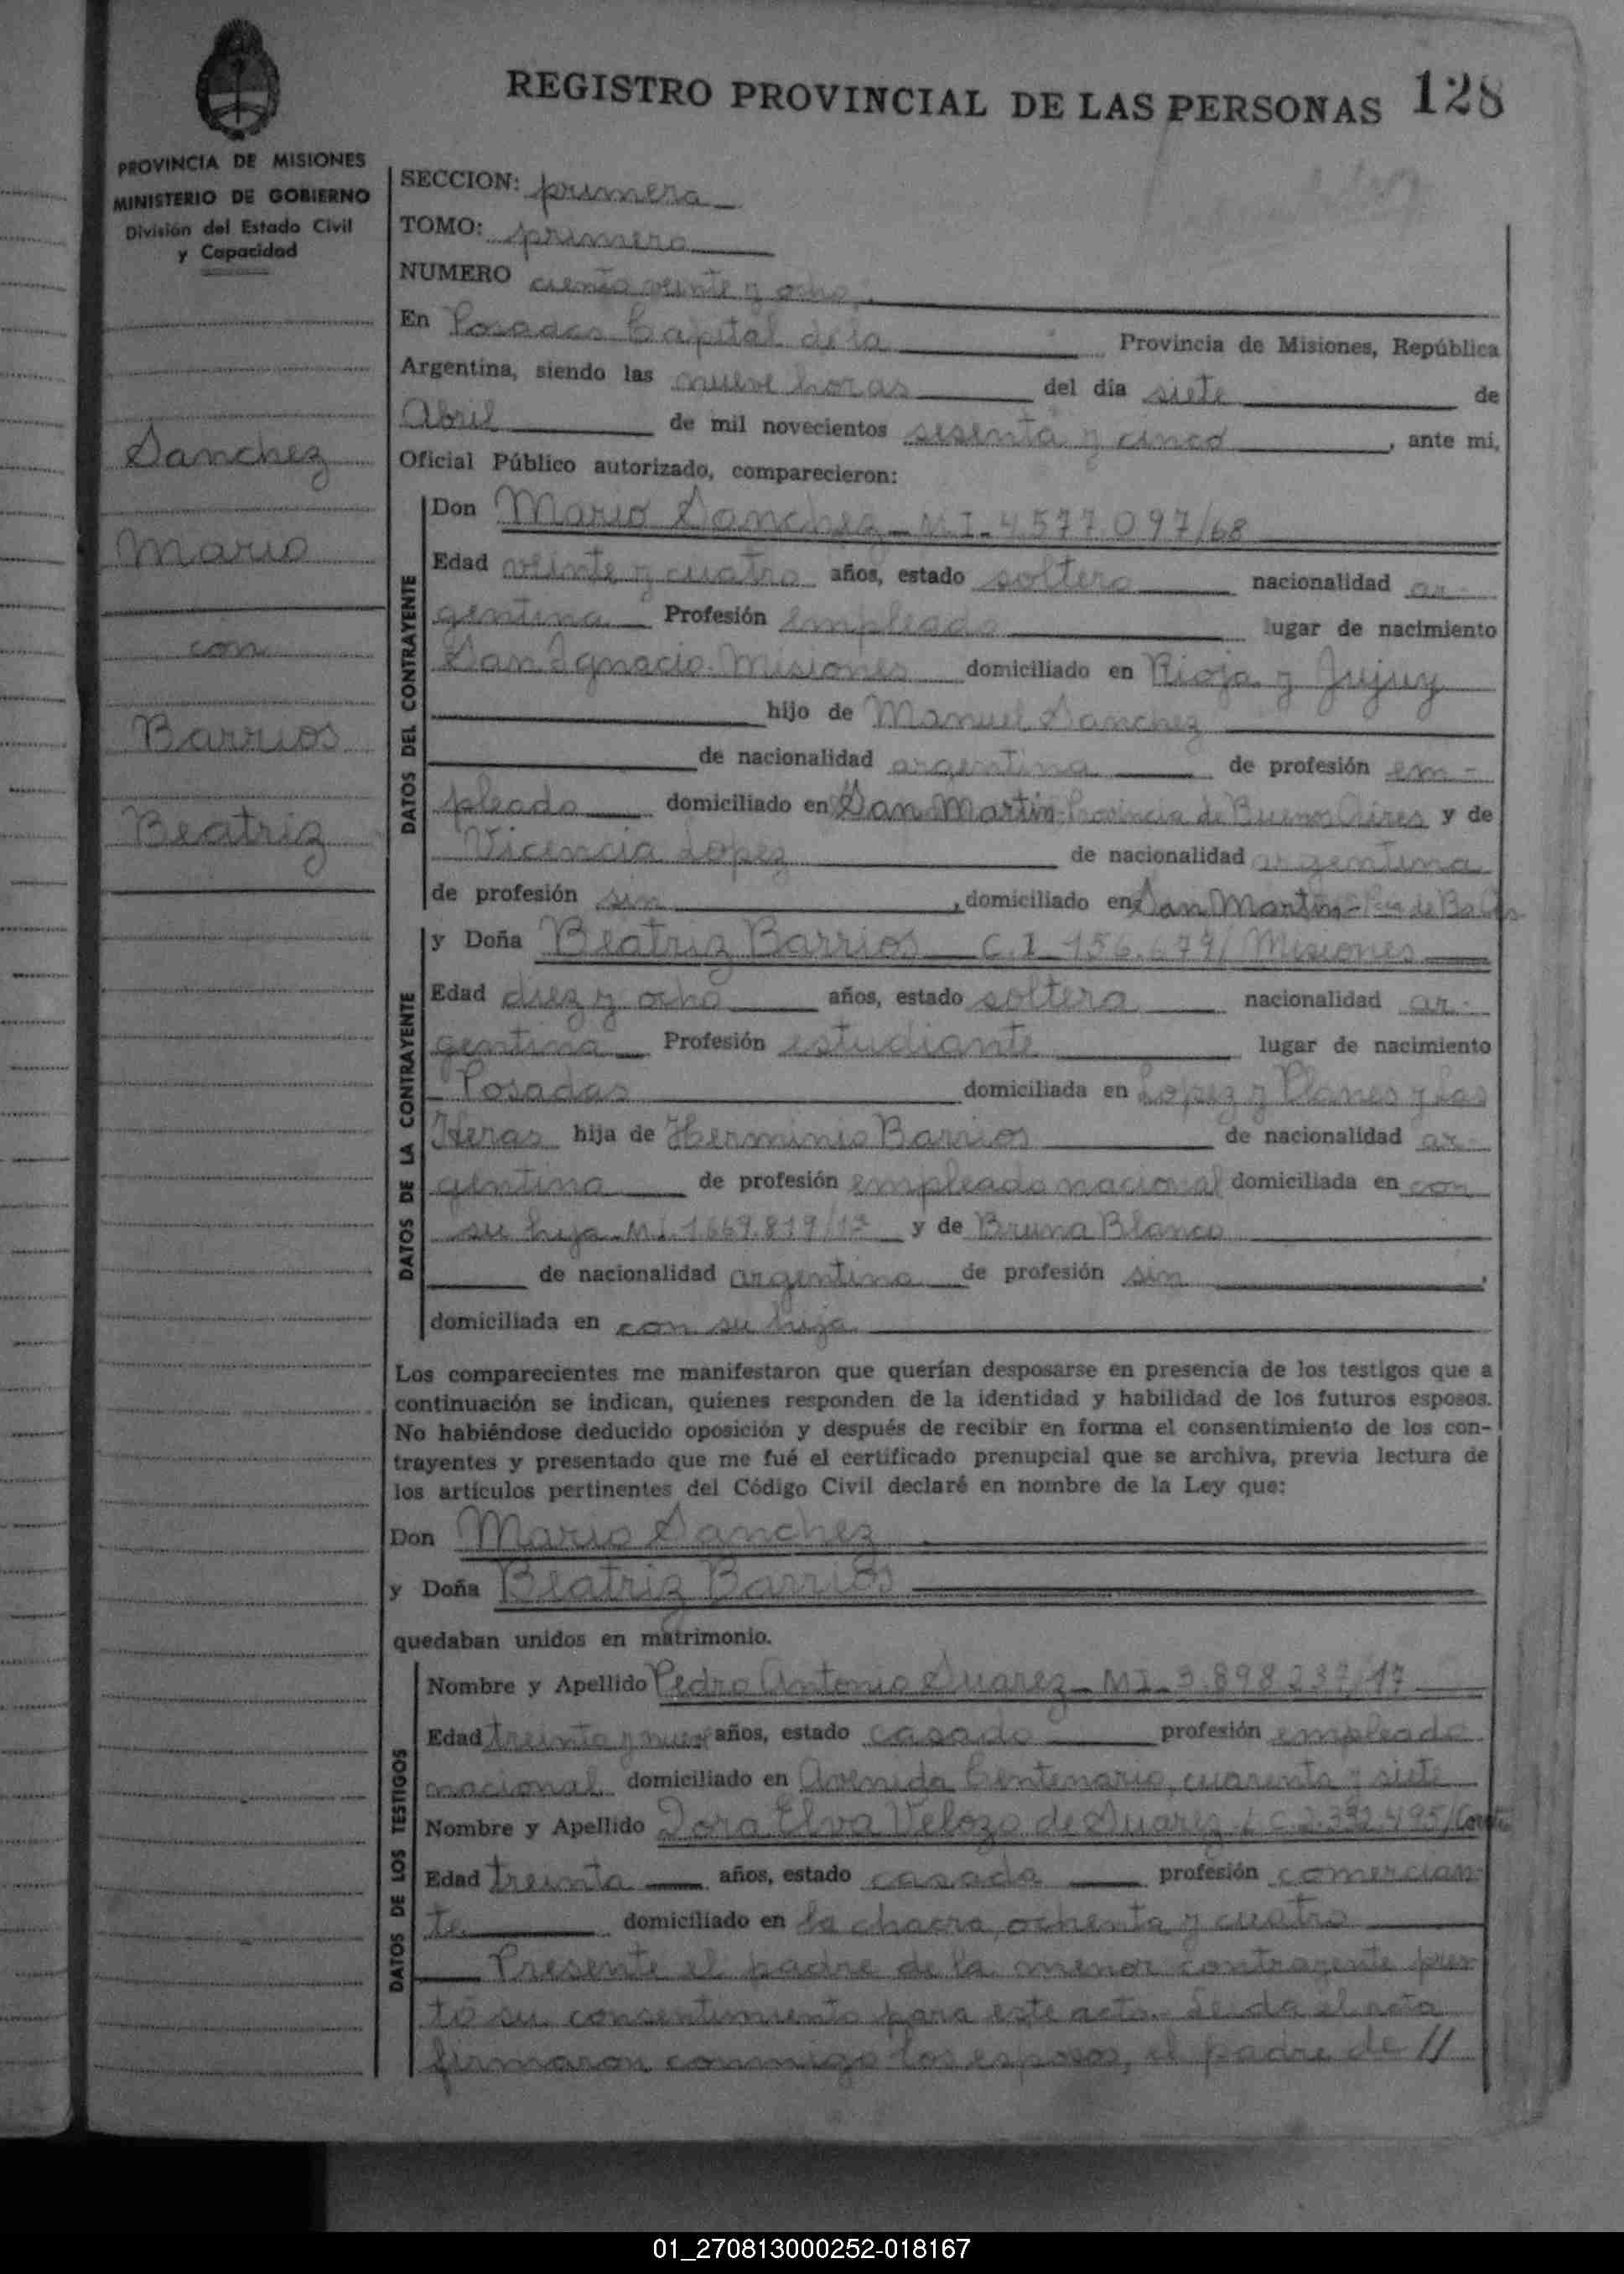 REGISTRO PROVINCIAL DE LAS PERSONAS 128
PROVINCIA DE MISIONES
MINISTERIO DE GOBIERNO
División del Estado Civil
y Capacidad
Sanchez
Mario
con
Barrios
Beatriz
SECCION: primera
TOMO: primero
NUMERO ciento veinte y ocho
En Posadas Capital de la Provincia de Misiones, República
Argentina, siendo las nueve horas del día siete de
Abril de mil novecientos sesenta y cinco, ante mi,
Oficial Público autorizado, comparecieron:
DATOS DEL CONTRAYENTE
Don Mario Sanchez - M.I. 4.577.097/68
Edad veinte y cuatro años, estado soltero nacionalidad ar-
gentina Profesión empleado lugar de nacimiento
San Ignacio. Misiones domiciliado en Rioja y Jujuy
hijo de Manuel Sanchez
de nacionalidad argentina de profesión em-
pleado domiciliado en San Martin Provincia de Buenos Aires y de
Vicencia Lopez de nacionalidad argentina
de profesión sin, domiciliado en San Martin - Pcia de Bs
DATOS DE LA CONTRAYENTE
y Doña Beatriz Barrios C.I. 156.679/ Misiones
Edad diez y ocho años, estado soltera nacionalidad ar-
gentina Profesión estudiante lugar de nacimiento
Posadas domiciliada en Lopez y Planes y Las
Heras hija de Herminio Barrios de nacionalidad ar-
gentina de profesión empleado nacional domiciliada en con
su hija. M.I. 1.669.819/ y de Bruna Blanco
de nacionalidad argentina de profesión sin,
domiciliada en con su hija
Los comparecientes me manifestaron que querían desposarse en presencia de los testigos que a
continuación se indican, quienes responden de la identidad y habilidad de los futuros esposos.
No habiéndose deducido oposición y después de recibir en forma el consentimiento de los con-
trayentes y presentado que me fué el certificado prenupcial que se archiva, previa lectura de
los artículos pertinentes del Código Civil declaré en nombre de la Ley que:
Don Mario Sanchez
y Doña Beatriz Barrios
quedaban unidos en matrimonio.
DATOS DE LOS TESTIGOS
Nombre y Apellido Pedro Antonio Suarez - M.I. 3.898.237/17
Edad treinta y nueve años, estado casado profesión empleado
nacional domiciliado en Avenida Centenario, cuarenta y siete
Nombre y Apellido Dora Elva Velozo de Suarez
Edad treinta años, estado casada profesión comercian-
te domiciliado en la chacra, ochenta y cuatro
Presente el padre de la menor contrayente pres
tó su consentimiento para este acto. Leida el acta
firmaron conmigo los esposos, el padre de //
01_270813000252-018167